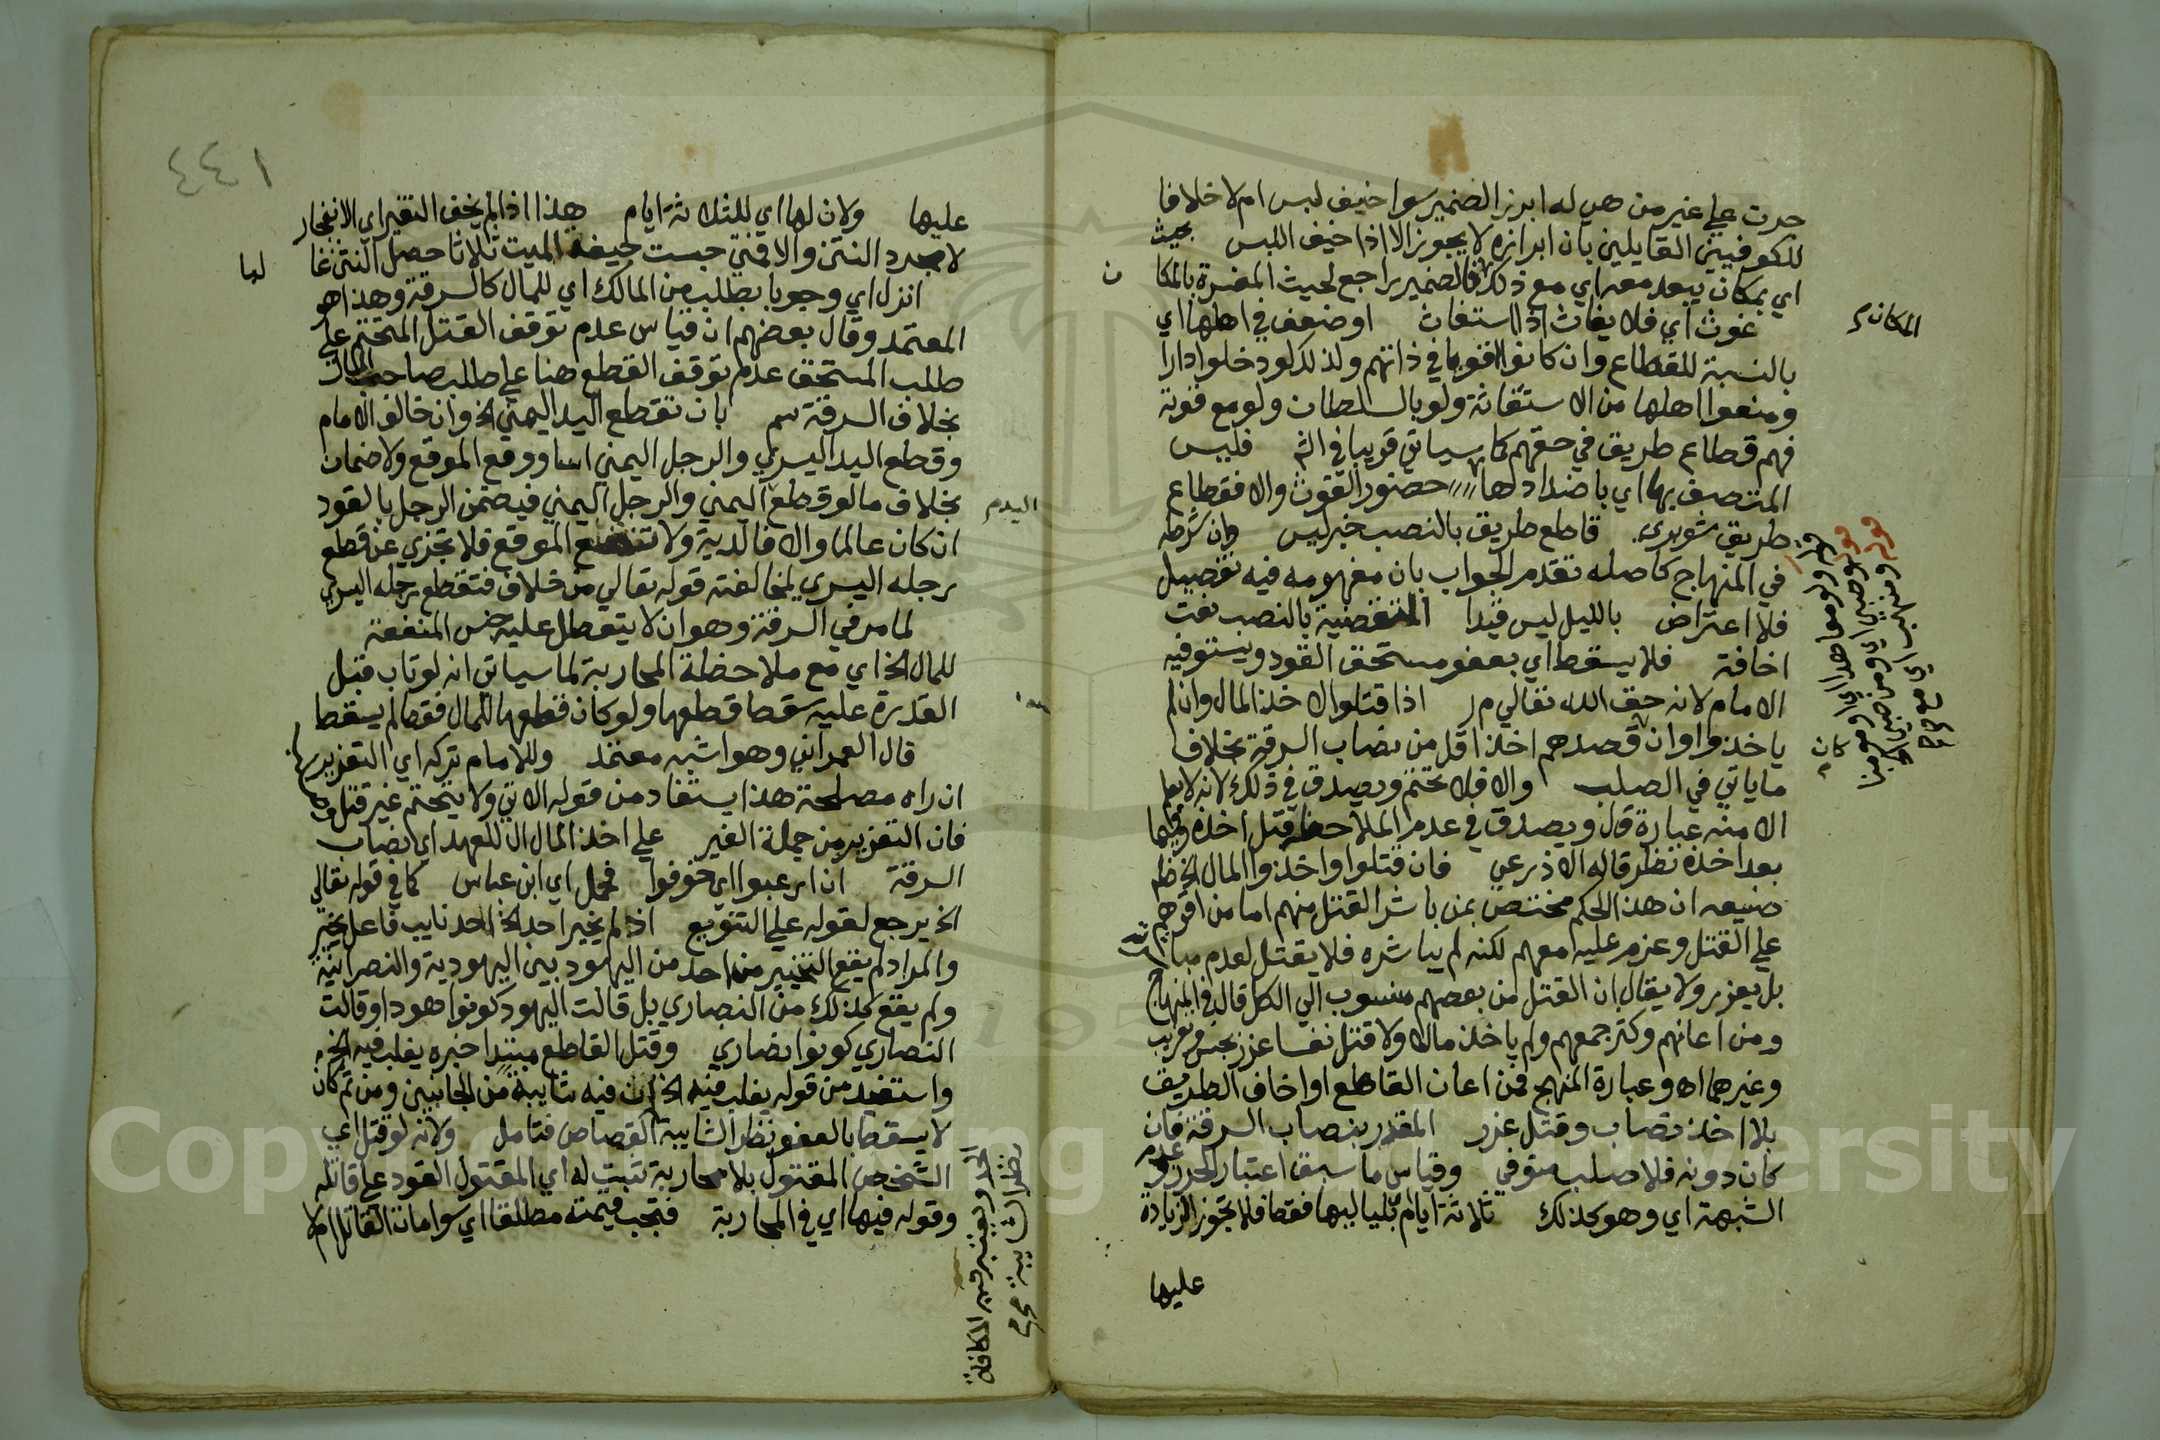 جرت علي غير من هي له ابرز الضمير سوا خيف لبس ام لا خلافا
للكوفيين القايلين بان ابرازه لا يجوز الا اذا خيف اللبس بحيث
اي بمكان يبعد معه اي مع ذلك فالضمير راجع لحيث المفسرة بالمكان
غوث اي فلا يغاث اذا استغاث او ضعف في اهلها اي
بالنسبة للقطاع وان كانوا اقويا في ذاتهم ولذلك لو دخلوا دارا
ومنعوا اهلها من الاستغاثة ولو بالسلطان ولو مع قوته
فهم قطاع طريق في حقهم كما سياتي قريبا في الشم فليس
المتصف بها اي باضدادها حضور الغوث والا فقطاع
طريق شوبري. قاطع طريق بالنصب خبر ليس وان شرطه
في المنهاج كاصله تقدم الجواب بان مفهومه فيه تفصيل
فلا اعتراض بالليل ليس قيدا المتقضية بالنصب نعت
اخافة فلا يسقط اي بعفو مستحق القود ويستوفيه
الامام لانه حق الله تعالي م ر اذا قتلوا لاخذ المال وان لم
ياخذوا وان قصدهم اخذ اقل من نصاب السرقة بخلاف
ما ياتي في الصلب والا فلا تحتم ويصدق في ذلك لانه لا يعلم
الا منه عبارة قال ويصدق في عدم الملاحظة قتل اخذه وفيما
بعد اخذه نظر قاله الاذرعي فان قتلوا واخذوا المال الخ ظم
صنيعه ان هذا الحكم مختص بمن باشر القتل منهم اما من اقرهم
علي القتل وعزم عليه معهم لكنه لم يباشره فلا يقتل لعدم مباشرته
بل يعزر ولا يقال ان القتل من بعضهم منسوب الي الكل قال في المنهاج
ومن اعانهم وكثر جمعهم ولم ياخذ مالا ولا قتل نفسا عزر بحبس وتغريب
وغيرهما اه وعبارة المنهج فمن اعان القاطع او اخاف الطريق
بلا اخذ نصاب وقتل عزر المقدر بنصاب السرقة فان
كان دونه فلا صلب متوفي وقياس ما سبق اعتبار الحرز وعدم
الشبهة اي وهو كذلك ثلاثة ايام بلياليها فقط فلا تجوز الزيادة
عليها
المكان م
قوله ولو معاهدا اي او مومنا كان
قوله وصبي اي ومن اصبي الخ
قوله ومنتهب اي
٤٤١
عليها ولان لها اي للثلاثة ايام هذا اذا لم يخف التغير اي الانفجار
لا مجرد النتن والا فمتي حبست جيفة الميت ثلاثا حصل النتن غالبا
انزل اي وجوبا بطلب من المالك اي للمال كالسرقة وهذا هو
المعتمد وقال بعضهم ان قياس عدم توقف القتل المتحتم علي
طلب المستحق عدم توقف القطع هنا علي طلب صاحب المال
بخلاف السرقة سم بان تقطع اليد اليمني الخ وان خالف الامام
وقطع اليد اليسري والرجل اليمني اسا ووقع الموقع ولا ضمان
بخلاف ما لو قطع اليمني والرجل اليمني فيضمن الرجل بالقود
ان كان عالما والا فالدية ولا تقع الموقع فلا تجزي عن قطع
رجله اليسري لمخالفته قوله تعالي من خلاف فتقطع رجله اليسري
لما مر في السرقة وهو ان لا يتعطل عليه جنس المنفعة
للمال الخ اي مع ملاحظة المحاربة لما سياتي انه لو تاب قبل
القدرة عليه سقط قطعها ولو كان قطعها للمال فقط لم يسقط
قال العمراني وهو اشبه معتمد وللامام تركه اي التعزير
ان راه مصلحة هذا يستفاد من قوله الاتي ولا يتحتم غير قتل وصلب
فان التعزير من جملة الغير علي اخذ المال ال للعهد اي نصاب
السرقة ان ارعبوا اي خوفوا فحمل اي ابن عباس كما في قوله تعالي
الخ يرجع لقوله علي التنويع اذ لم يخير احد الخ احد نايب فاعل يخير
والمراد لم يقع التخيير من احد من اليهود بين اليهودية والنصرانية
ولم يقع كذلك من النصاري بل قالت اليهود كونوا هودا وقالت
النصاري كونوا نصاري وقتل القاطع مبتدا خبره يغلب فيه الخ
واستفيد من قوله يغلب فيه الخ ان فيه شايبة من الجانبين ومن ثم كان
لا يسقط بالعفو نظر الشايبة القصاص فتامل ولانه لو قتل اي
الشخص المقتول بلا محاربة تثبت له اي المقتول القود علي قاتله
وقوله فيها اي في المحاربة فتجب قيمته مطلقا اي سوا مات القاتل ام لا
الحد ويعتبر فيه المكافاة
نظر الشايبة